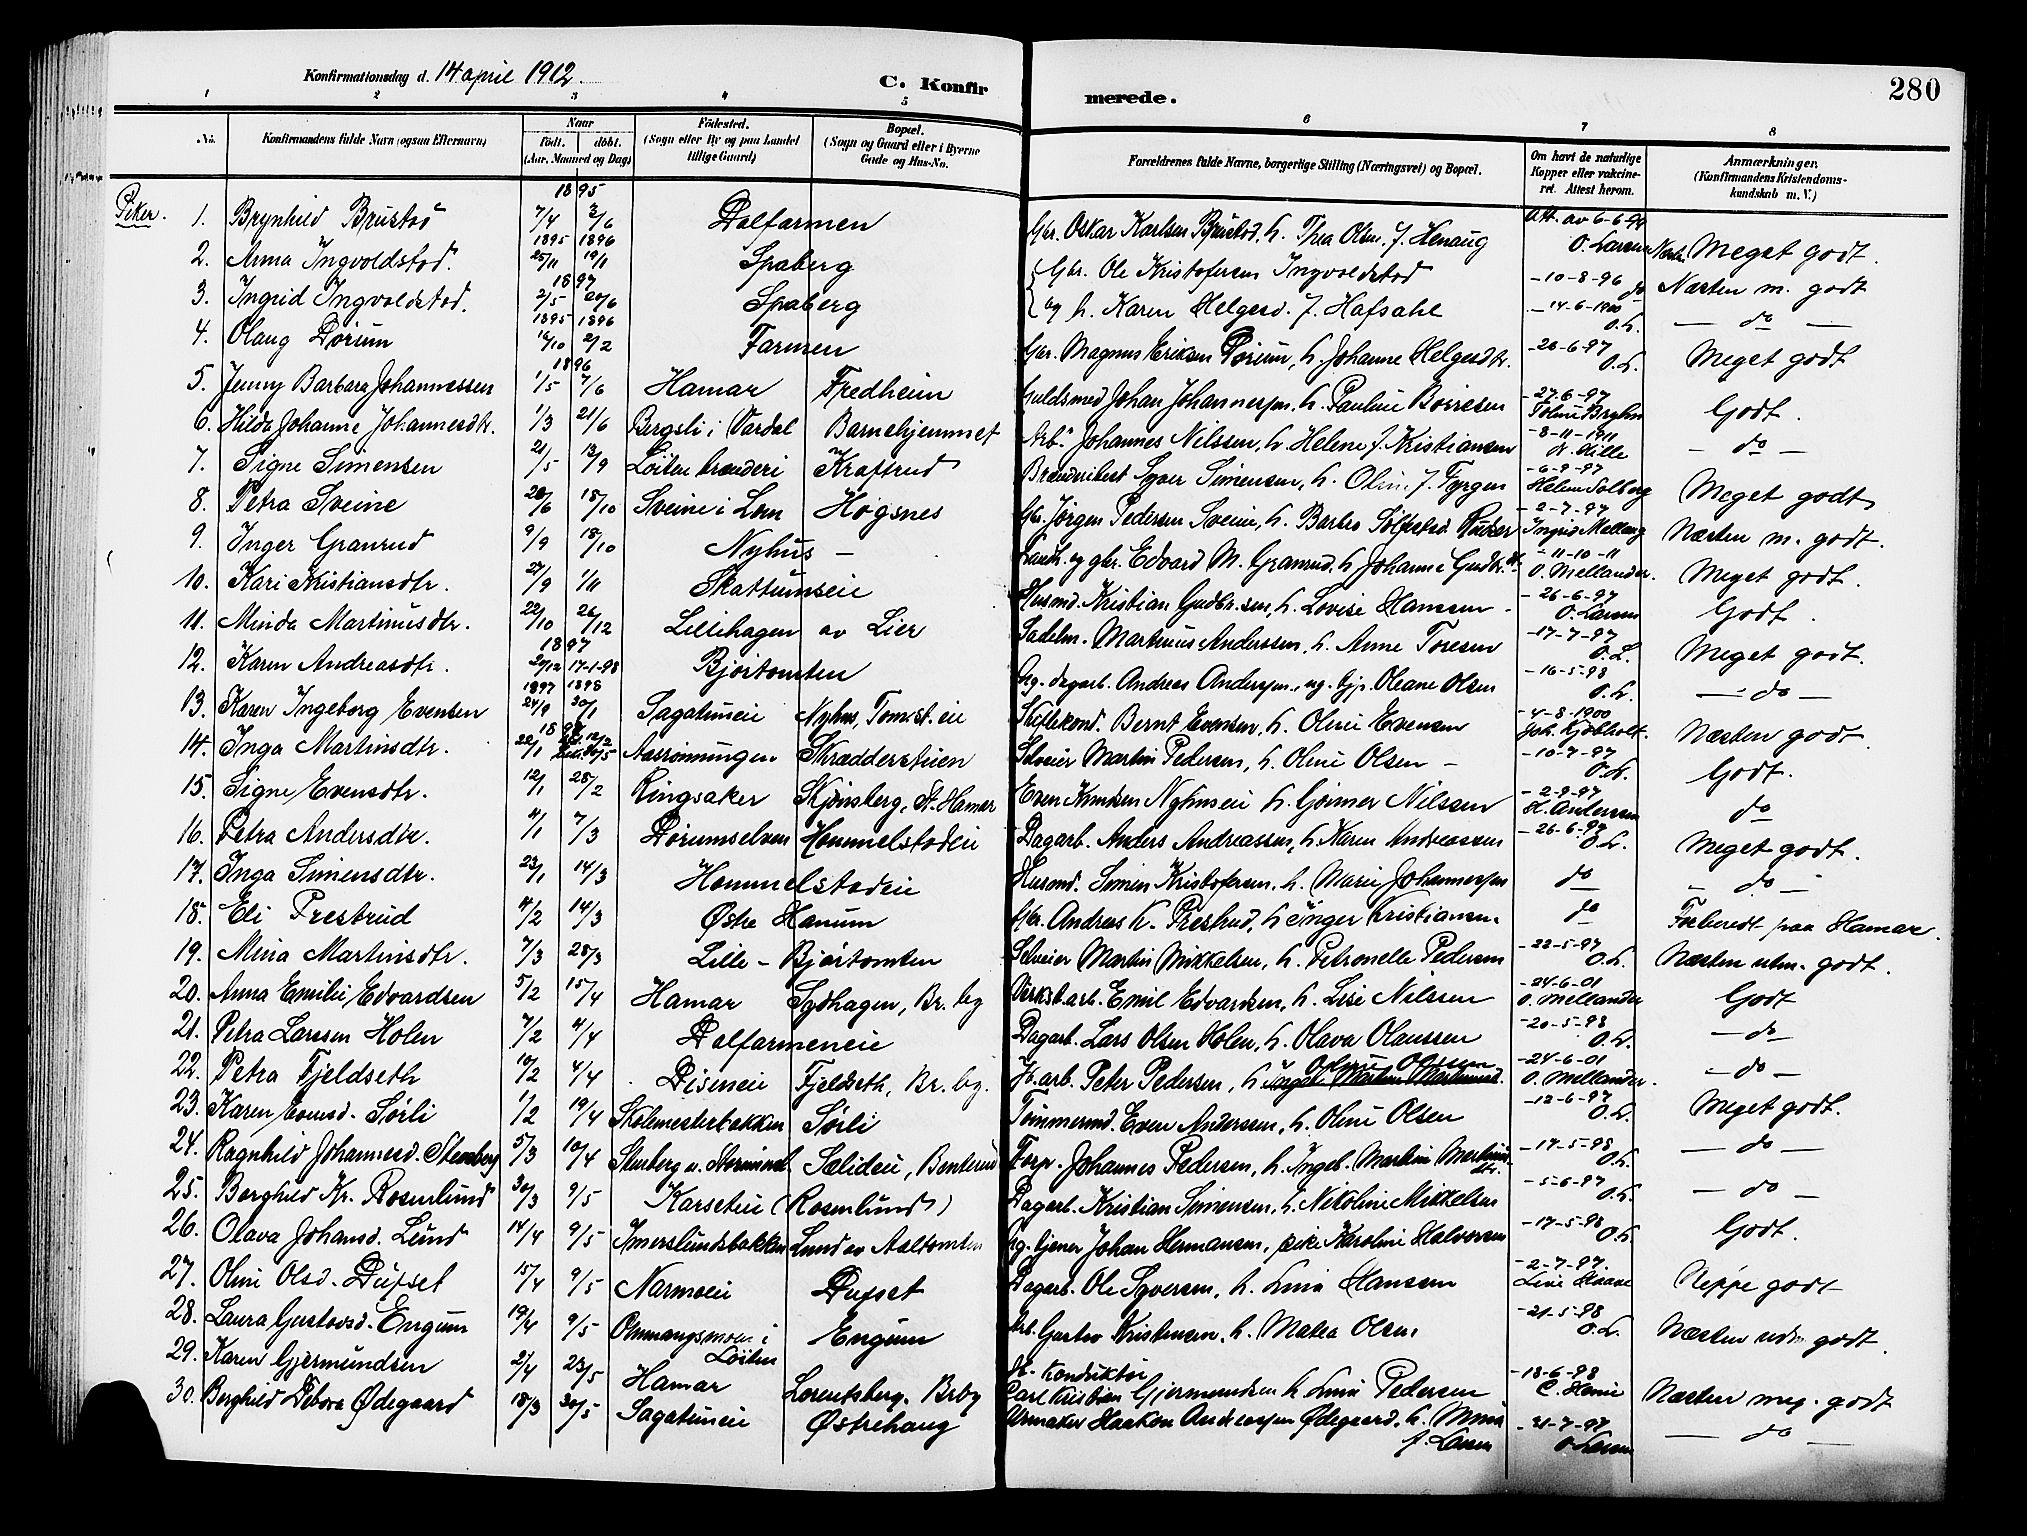 Konfirmationsdag d. 14 april 1912.
C. Konfirmerede.
280
1 2 3 4 5 6 7 8
No. Konfirmandens fulde Navn (ogsaa Efternavn) Naar Født. døbt. (Aar, Maaned og Dag) Fødested. (Sogn eller By og paa Landet tillige Gaard) Bopæl. (Sogn og Gaard eller i Byerne Gade og Hus-No. Forældrenes fulde Navne, borgerlige Stilling (Næringsvei) og Bopæl. Om havt de naturlige Kopper eller vaccineret. Attest herom. Anmærkninger. (Konfirmandens Kristendomskundskab m. V.)
Piker.
1895
1. Brynhild Brustad 7/4 2/6 Dalfarmen Gbr. Oskar Karlsen Brustad, h. Thea Olsen, f. Henaug Att. av 6-6-99 O. Larsen Meget godt.
1895 1896
2. Anna Ingvoldstad. 25/11 19/1 Spaberg Gbr. Ole Kristofersen Ingvoldstad -10-8-96 do Næsten m. godt
1897
3. Ingrid Ingvoldstad. 2/5 20/6 Spaberg og h. Karen Helgesd. f. Hafsahl -14-6-1900 O.L. — do —
1895 1896
4. Olaug Dørum 16/10 2/2 Farmen Gbr. Magnus Eriksen Dørum, h. Johanne Helgesdtr. -26-6-97 O.L. Meget godt
1896
5. Jenny Barbara Johannessen 1/5 7/6 Hamar Fredheim Guldsmed Johan Johannessen, h. Pauline Børresen -27-6-97 Bryhn Godt.
6. Hilda Johanne Johannesdtr. 1/3 21/6 Bergsli i Vardal Barnehjemmet Arb. Johannes Nilssen, h. Helene f. Kristiansen -8-11-1911 N. Lille — do —
7. Signe Simensen 21/5 13/9 Løiten brænderi Kraftrud Brænderibest. Syver Simensen, h. Oline f. Fyrgen -6-9-97 Helene Solberg Meget godt
8. Petra Sveine 28/6 18/10 Sveine i Lom Høgsnes Gbr. Jørgen Pedersen Sveine, h. Barbro -2-7-97 Ingrid Mellang Næsten m. godt.
9. Inger Granrud 9/9 18/10 Nyhus — Landh. og gbr. Edvard M. Granrud, h. Johanne Gudbr.dtr. -11-10-11 O. Mellander. Meget godt.
10. Kari Kristiansdtr. 27/9 1/11 Skattumseie Husmd. Kristian Gudbr.sen, h. Lovise Hanssen -26-6-97 O. Larsen Godt.
11. Minda Martinusdtr. 22/10 26/12 Lillehagen av Lier Sadelm. Martinus Anderssen, h. Anne Toresen -17-7-97 O.L. Meget godt.
1897
12. Karen Andreasdtr. 20/12 17-1-98 Bjørtomten Ug. dagarb. Andreas Anderssen, ug. tjp. Oleane Olsen -16-5-98 O.L. — do —
1897 1898
13. Karen Ingeborg Evensen 24/9 30/1 Sagatuneie Nyhus, Tomst. eie Skiftekond. Bernt Evensen, h. Oline Evensen -4-8-1900 Joh. Kjøbholt. Næsten godt
1897
14. Inga Martinsdtr. 22/1 Aasrønningen Skrædderstuen Selveier Martin Pedersen, h. Oline Olsen — -10-7-97 O.L. Godt.
15. Signe Evensdtr. 12/1 28/2 Ringsaker Skjønsberg, St. Hamar Even Knudsen Nyhuseie h. Gjøner Nilssen -2-9-97 H. Andersen do
16. Petra Andersdtr. 4/1 7/3 Dørumselven Hommelstadeie Dagarb. Anders Andreassen, h. Karen Andreassen -26-6-97 O.L. Meget godt.
17. Inga Simensdtr. 23/1 14/3 Hommelstadeie Husmd. Simen Kristofersen, h. Marie Johannessen do — do —
18. Eli Prestrud 4/2 14/3 Østre Hanum Gbr. Andreas K. Prestrud, h. Inger Kristiansen do Forberedt paa Hamar.
19. Mina Martinsdtr. 7/3 28/3 Lille-Bjørtomten Selveier Martin Mikkelsen, h. Petronelle Pedersen -22-5-97 O.L. Næsten utm. godt.
20. Anna Emilie Edvardsen 5/2 15/4 Hamar Sydhagen, Br. by Verkst.arb. Emil Edvardsen, h. Lise Nilssen -24-6-01 O. Mellander Godt
21. Petra Larssen Holen 7/2 4/4 Dalfarmeneie Dagarb. Lars Olsen Holen, h. Olava Olaussen -20-5-98 O.L. — do —
22. Petra Fjeldseth 10/2 4/4 Diseneie Fjeldseth, Br. by. Jb.arb. Peter Pedersen, h. -24-6-01 O. Mellander. — do —
23. Karen Evensd. Sørli 1/2 19/4 Skolemesterbakken Sørli Tømmermd. Even Anderssen, h. Oline Olsen -12-6-97 O.L. Meget godt.
24. Ragnhild Johannesd. Stenberg 5/3 10/4 Stenberg Sælideie, Benterud Forp. Johannes Pedersen, h. Ingeb. Martine Martinsdtr. -17-5-98 O.L. — do —
25. Borghild Kr. Rosenlund 30/3 9/5 Karseteie (Rosenlund) Dagarb. Kristian Simensen, h. Nikoline Mikkelsen -5-6-97 O.L. — do —
26. Olava Johansd. Lund 14/4 9/5 Imerslundsbakken Lund av Aaltomten Ug. tjener Johan Hermansen, pike Karoline Halvorsen -17-5-98 O.L. Godt.
27. Oline Olsd. Dufset 15/4 9/5 Narmoeie Dufset Dagarb. Ole Syversen, h. Lina Hansen -2-7-97. Lise Haave Neppe godt
28. Laura Gustavsd. Engum 19/4 9/5 Ommangsmoen i Løiten Engum Arb. Gustav Kristensen, h. Matea Olsen -21-5-98 O.L. Næsten udm. godt.
29. Karen Gjermundsen 2/4 23/5 Hamar Lorentsberg, Brby Jb. Konduktør Carl Kristian Gjermundsen h. Lina Pedersen -18-6-98 Næsten meg. godt
30. Borghild Debora Ødegaard 18/3 30/5 Sagatuneie Østrehaug Urmaker Haakon Andreassen Ødegaard, h. Mina f. Larsen -21-7-97 O. Larsen — do —